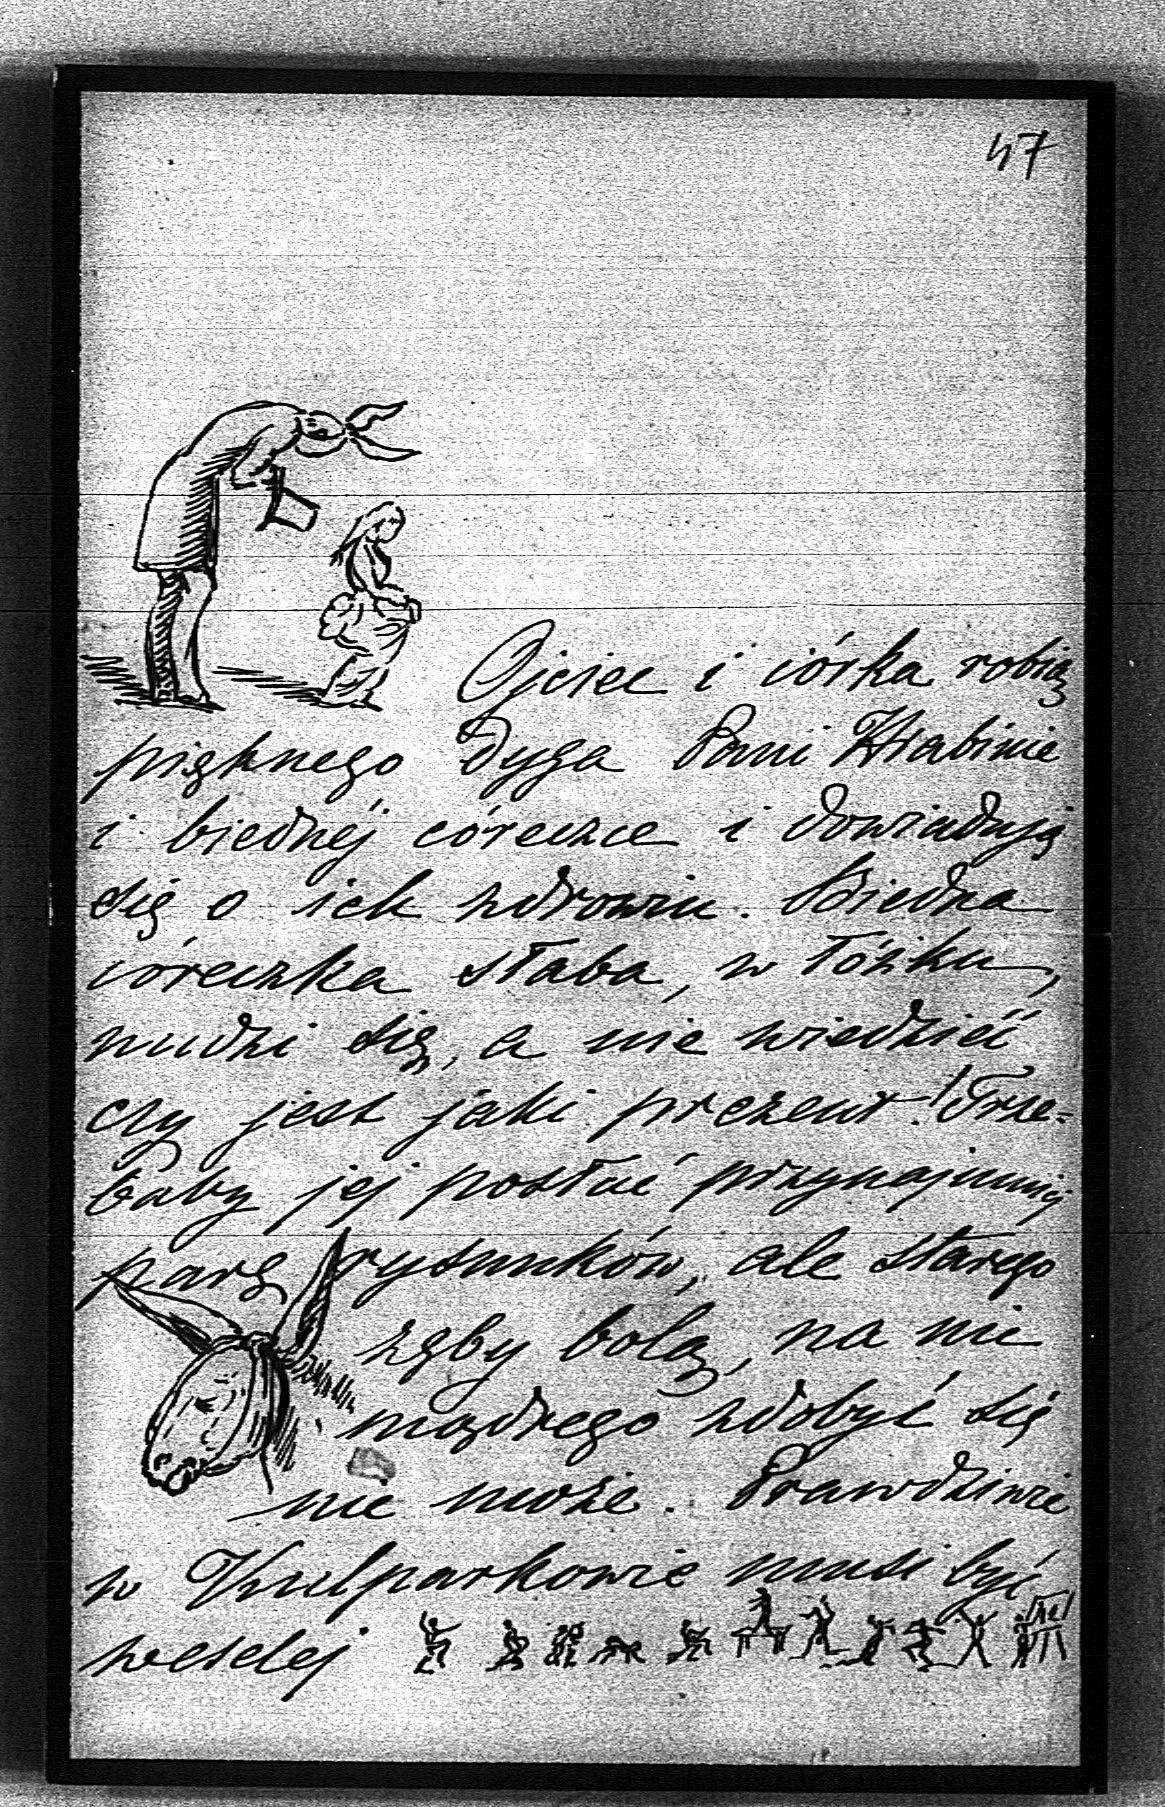 47
Ojciec i córka robią
pięknego dyga Pani Hrabinie
i biednéj córeczce i dowiadują
się o ich zdrowiu. Biedna
córeczka słaba, w łóżku,
nudzi się, a nie wiedzieć
czy jest jaki prezent! Trze-
baby jej posłać przynajmniej
parę rysunków, ale starego
zęby bolą, na nic
mądrego zdobyć się
nie może. Prawdziwie
w Kulparkowie musi być
weselej